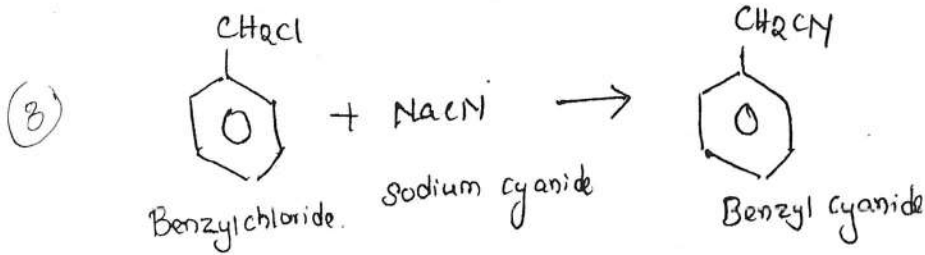 CH2Cl CH2CN
8 + NaCN →
Benzylchloride. Sodium cyanide Benzyl cyanide